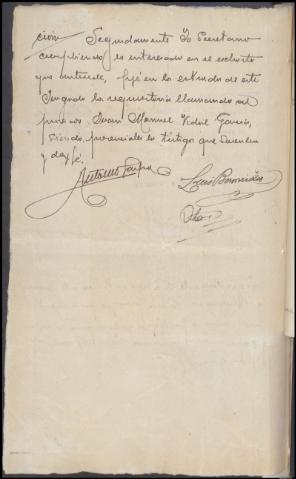 ción Seguidamente Yo Secretario
cumpliendo lo interesado en el exhorto
que antecede, fijé en los estrados de este
Juzgado la requisitoria llamando al
procesado Juan Manuel Vidal García,
siendo presenciales los testigos que suscriben
y doy fé.
Antonio
Luis Benavides